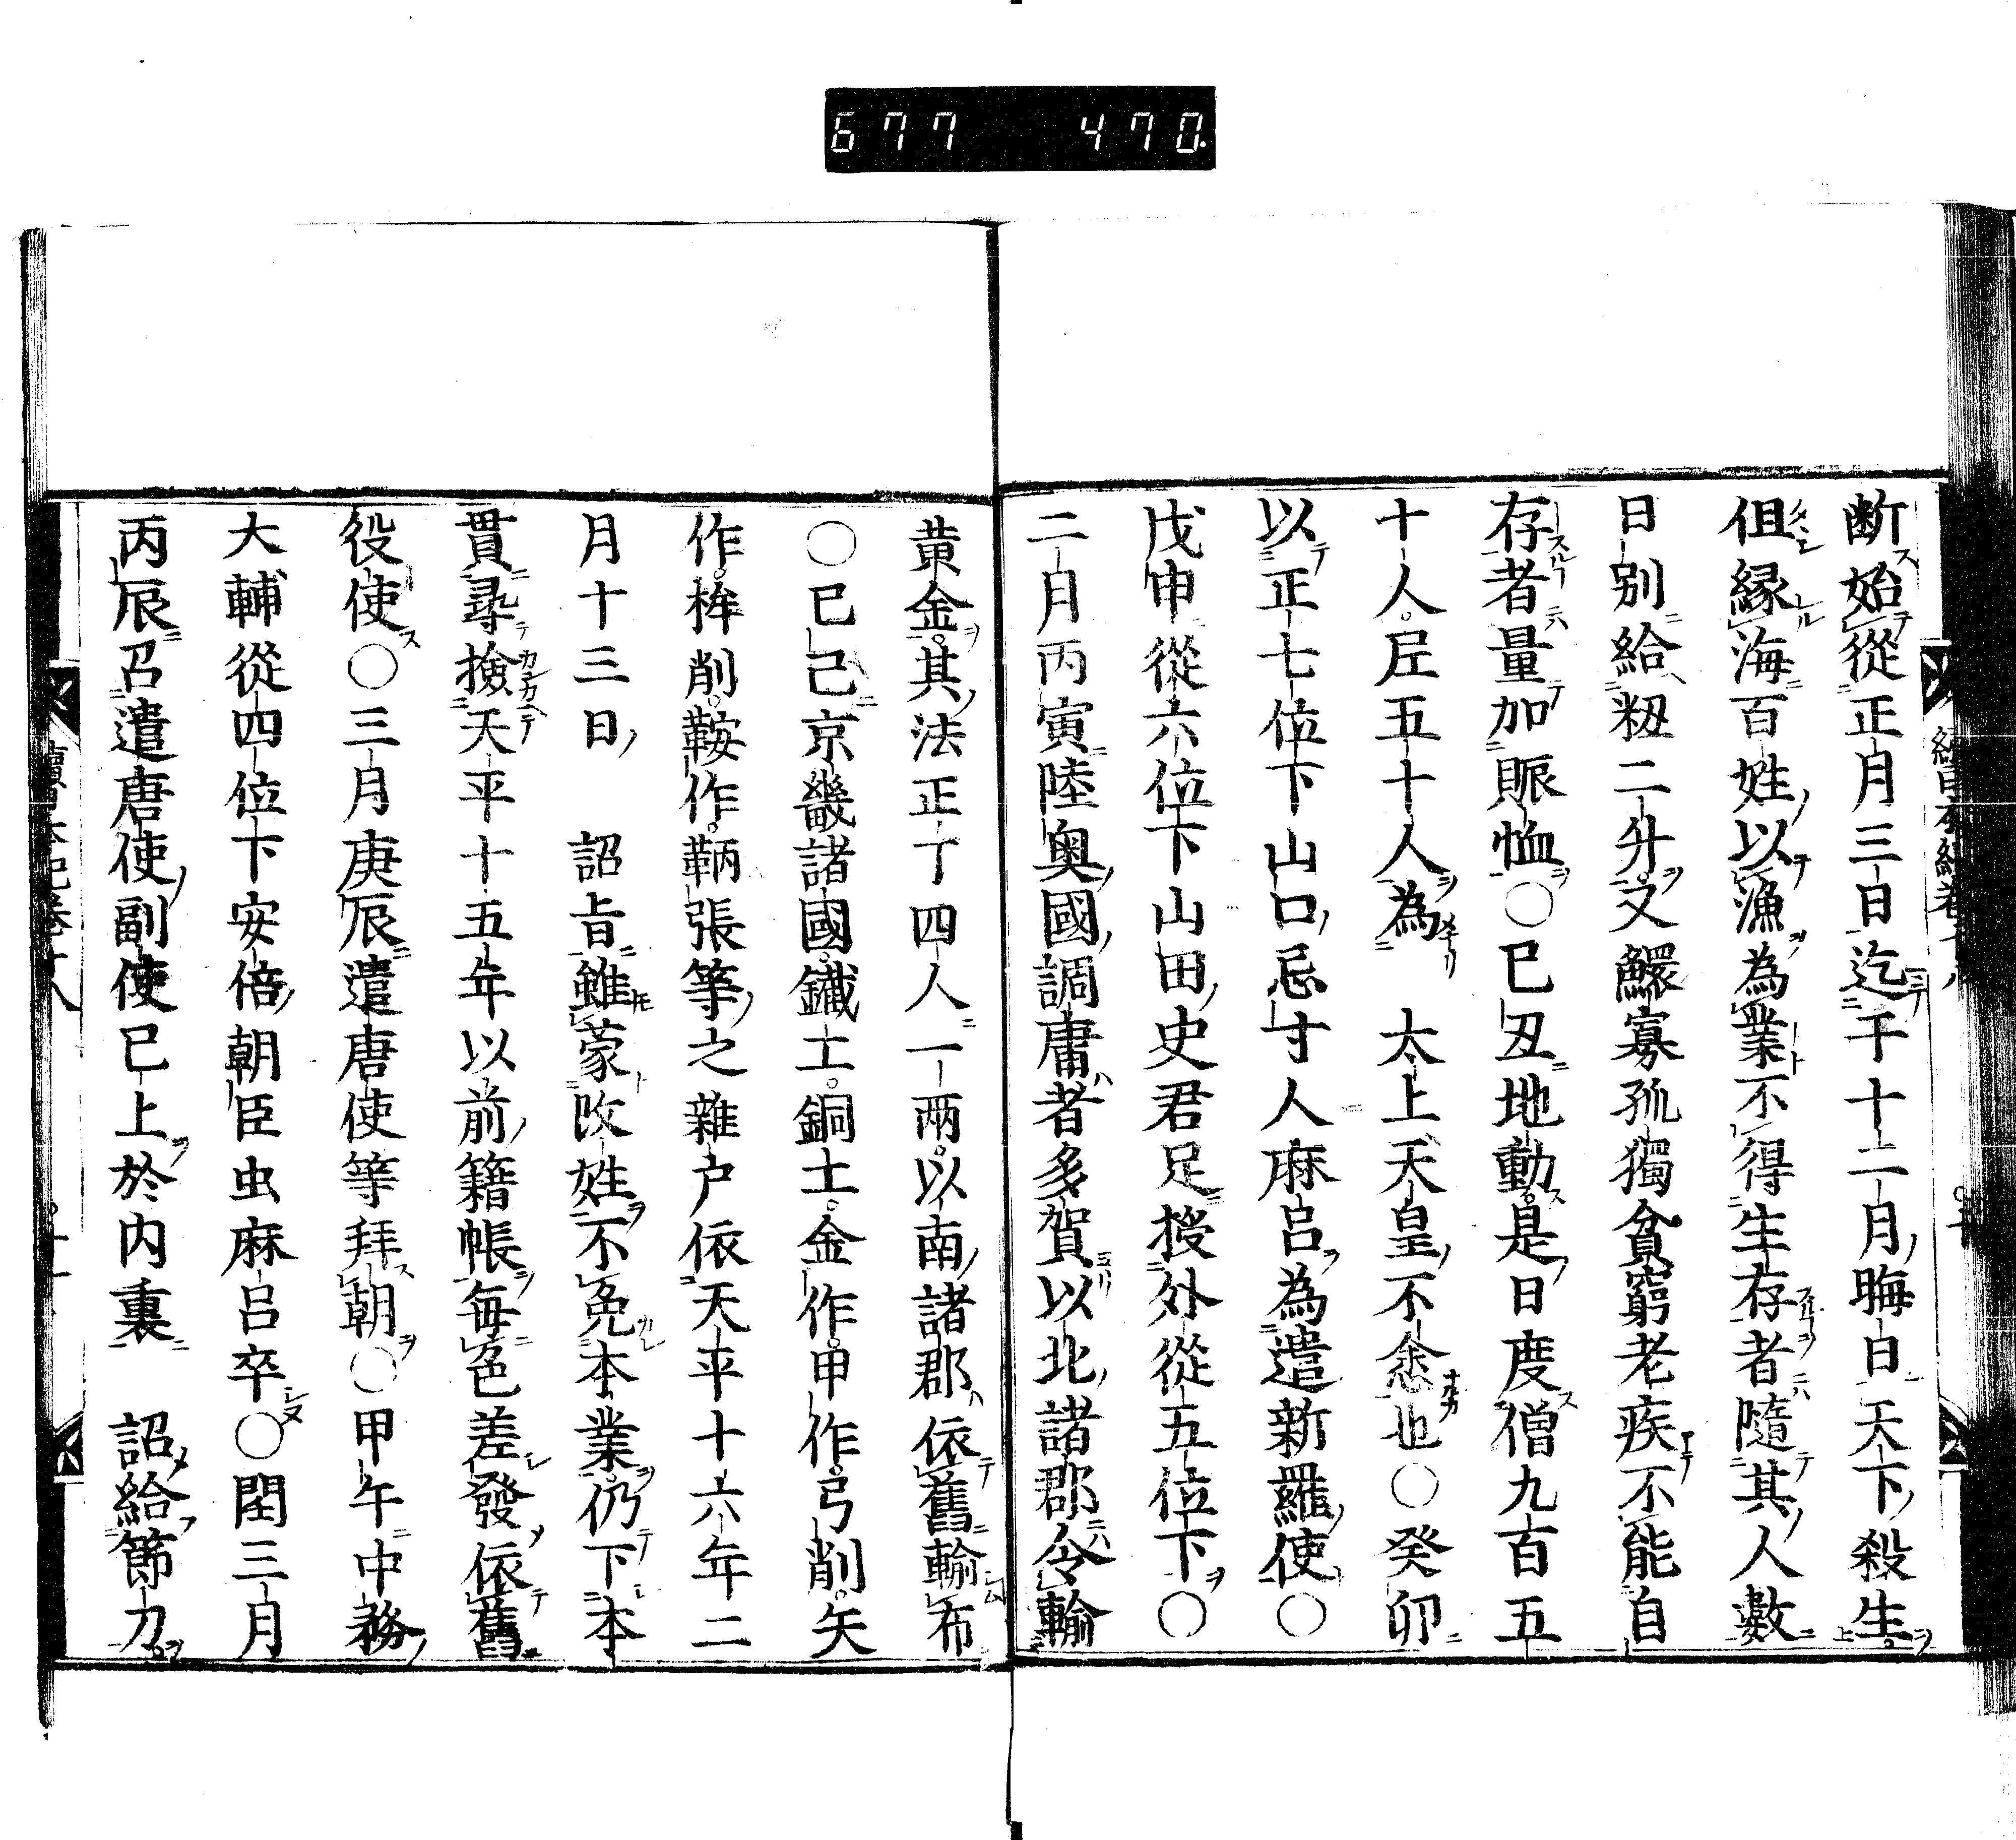 677 470.
断始從正月三日迄于十二月晦日天下殺生
伹縁海百姓以漁為業不得生存者隨其人數
日別給籾二升又鰥寡孤獨貧窮老疾不能自
存者量加賑恤○己丑地動是日度僧九百五
十人尼五十人為 太上天皇不悆也○癸卯
以正七位下山口忌寸人麻呂為遣新羅使○
戊申從六位下山田史君足授外從五位下○
二月丙寅陸奥國調庸者多賀以北諸郡令輸
黄金其法正丁四人一兩以南諸郡依舊輸布
○己巳京畿諸國鐵工銅工金作甲作弓削矢
作桙削鞍作鞆張等之雜户依天平十六年二
月十三日 詔旨雖蒙改姓不免本業仍下本
貫尋撿天平十五年以前籍帳毎色差發依舊
役使○三月庚辰遣唐使等拜朝○甲午中務
大輔從四位下安倍朝臣虫麻呂卒○閏三月
丙辰召遣唐使副使已上於内裏 詔給節刀